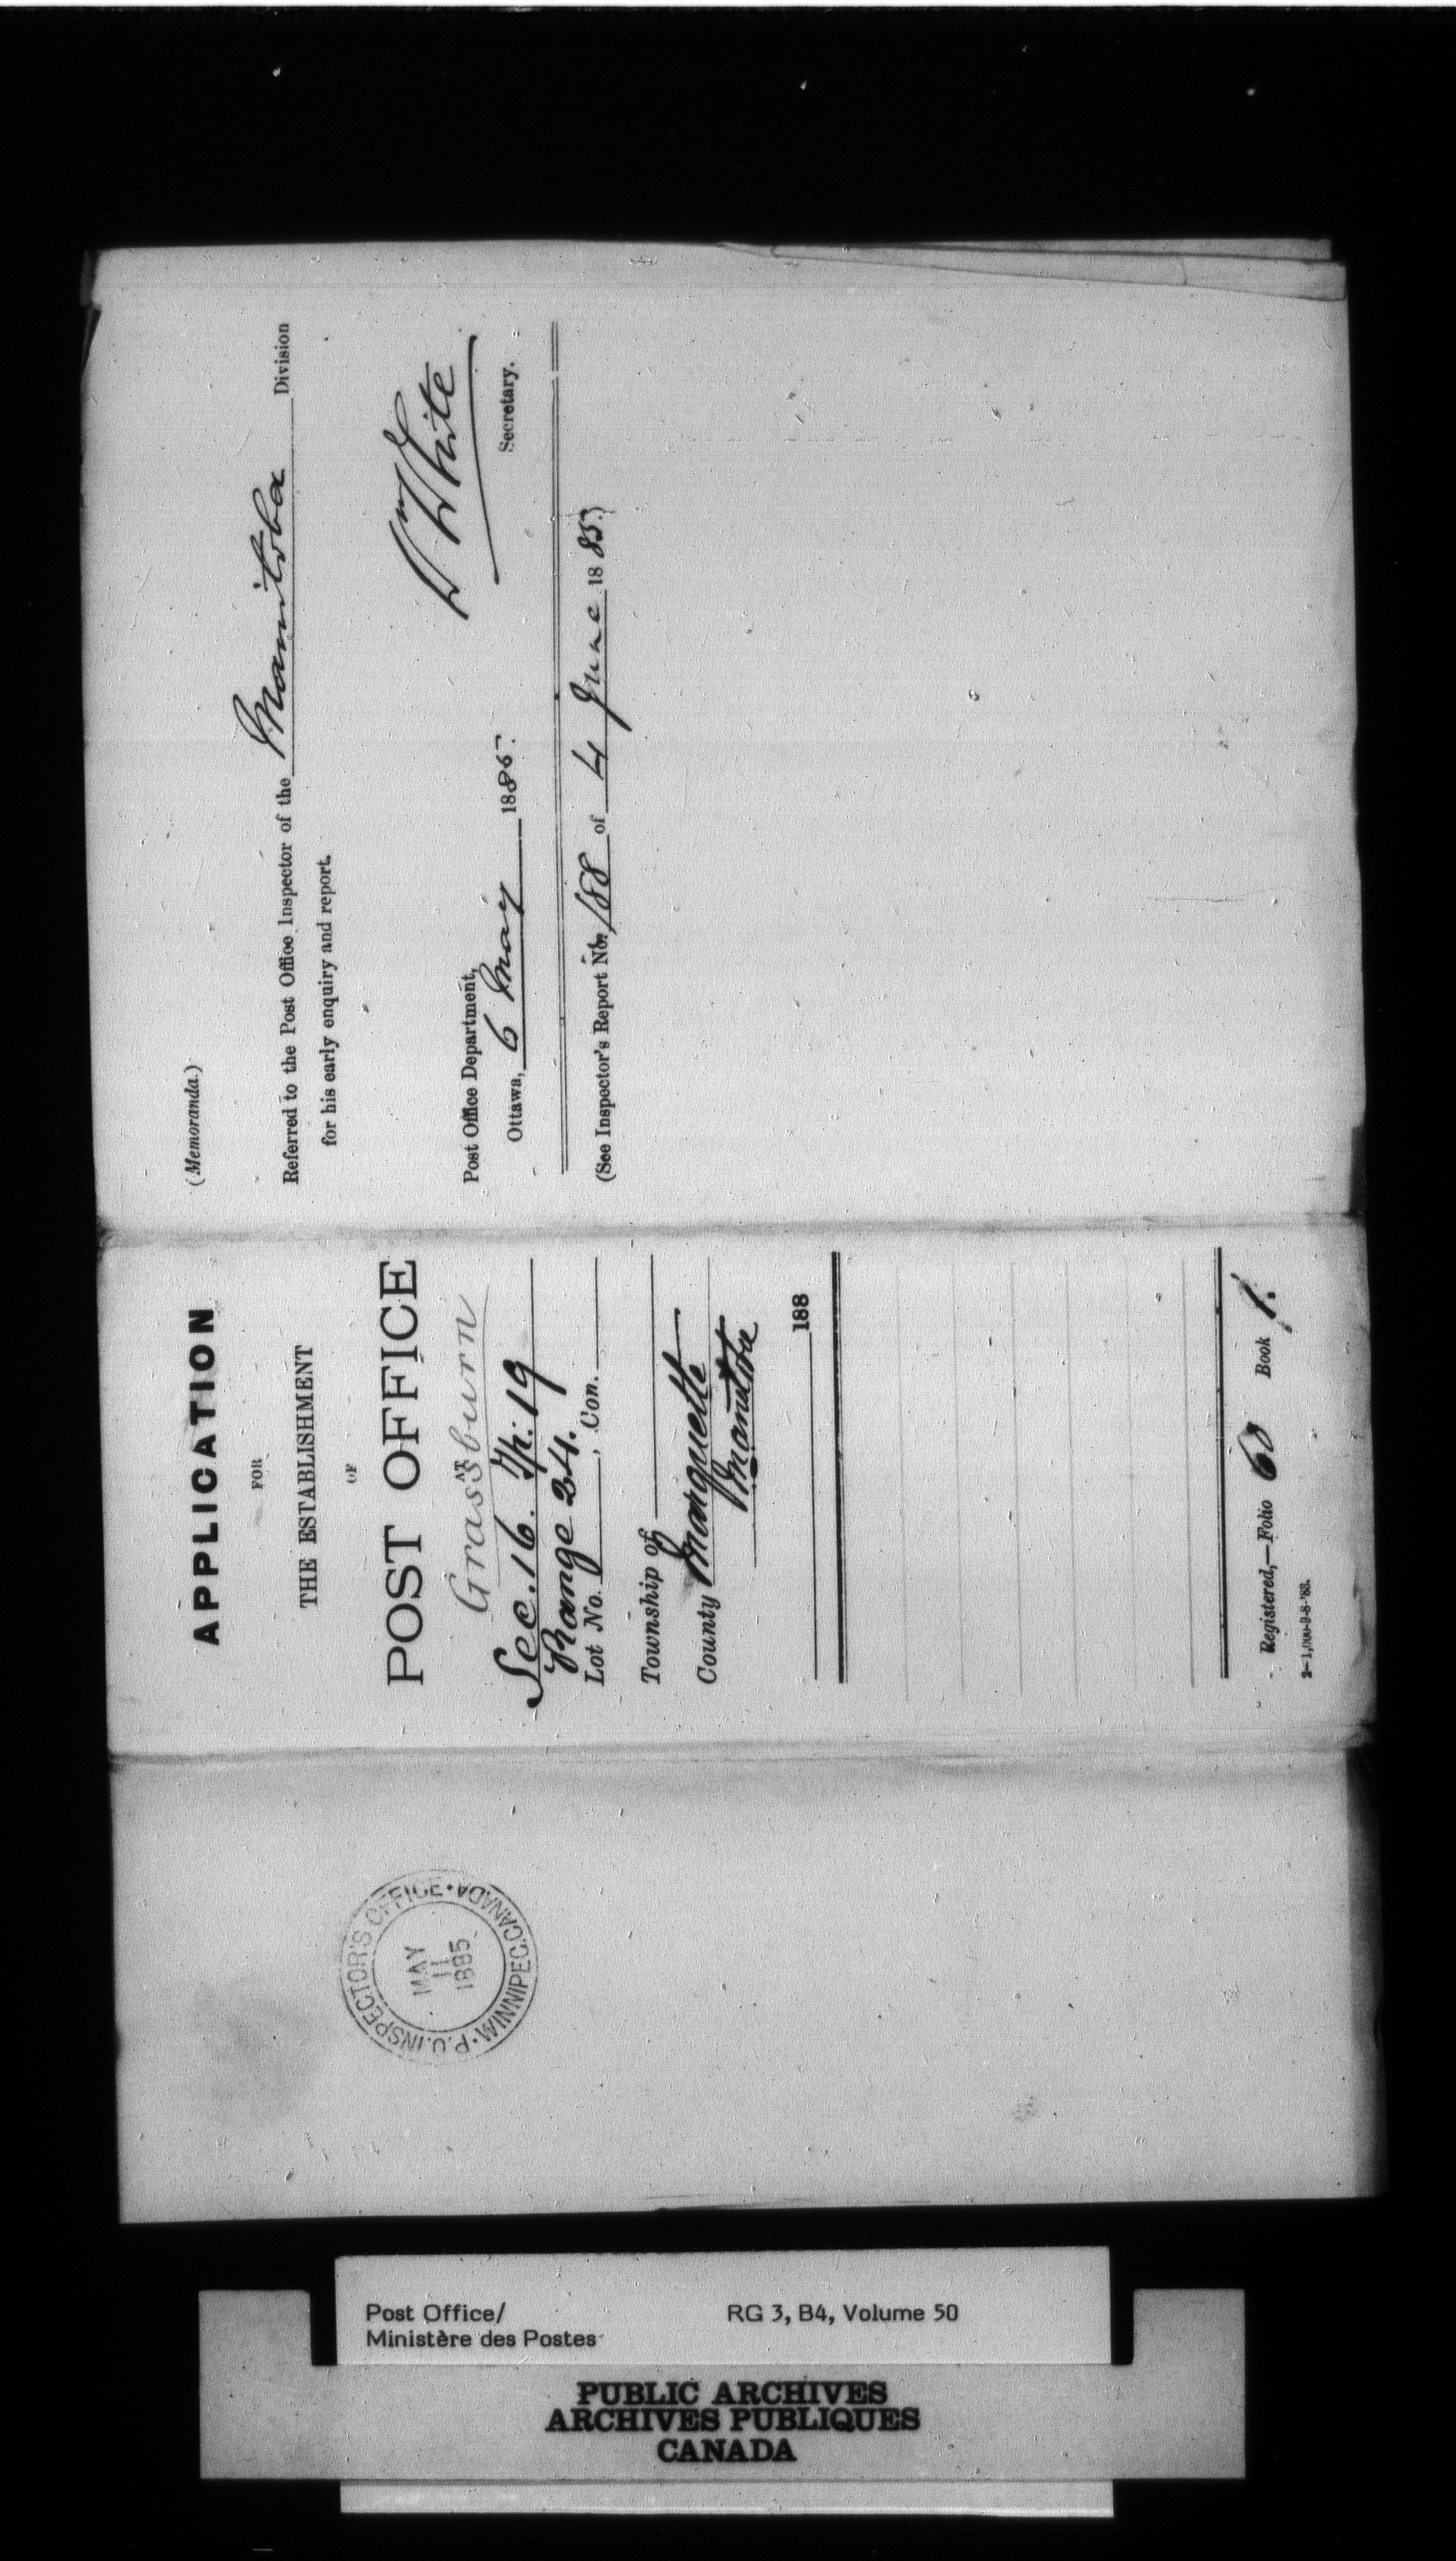 (Memoranda.)
Referred to the Post Office Inspector of the Manitoba Division
for his early enquiry and report.
Wm White
Secretary.
Post Office Department,
Ottawa, 6 May 1885.
(See Inspector's Report No. 188 of 4 June 1885)
APPLICATION
FOR
THE ESTABLISHMENT
OF
POST OFFICE
AT
Grassburn
Sec. 16. Tp. 19
Range 24.
Lot No. , Con.
Township of
County Marquette
Manitoba
188
Registered,—Folio 60 Book 1.
2—1,000-9-8-'83.
P.O. INSPECTOR'S OFFICE • WINNIPEG. CANADA •
MAY
11
1885
Post Office/
Ministère des Postes
RG 3, B4, Volume 50
PUBLIC ARCHIVES
ARCHIVES PUBLIQUES
CANADA